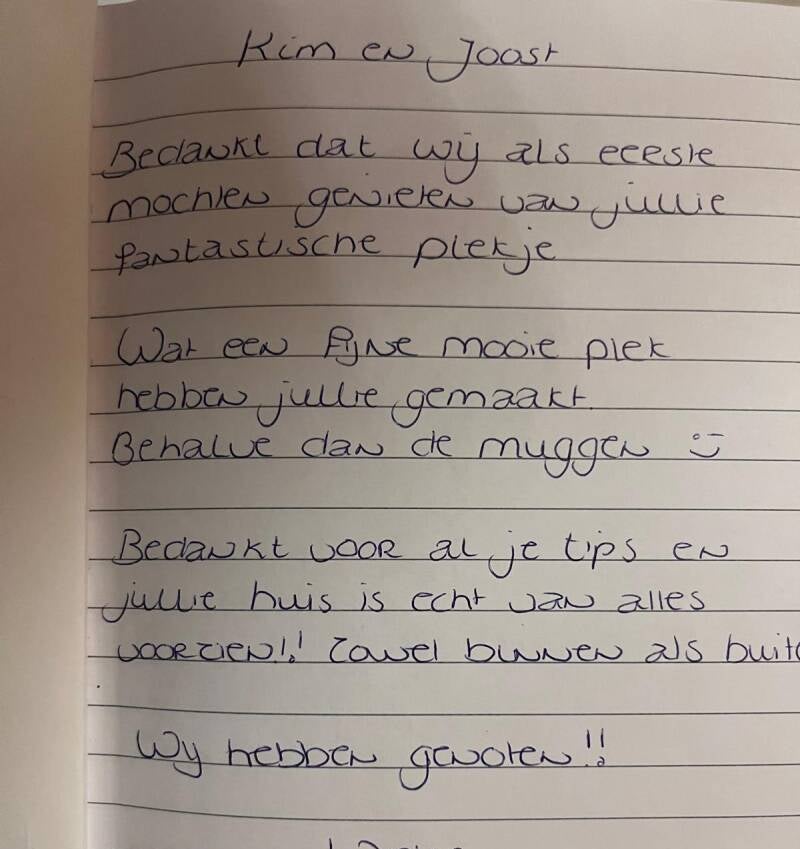 Kim en Joost
Bedankt dat wij als eerste
mochten genieten van jullie
fantastische plekje
Wat een fijne mooie plek
hebben jullie gemaakt.
Behalve dan de muggen :)
Bedankt voor al je tips en
jullie huis is echt van alles
voorzien!! Zowel binnen als
Wij hebben genoten!!